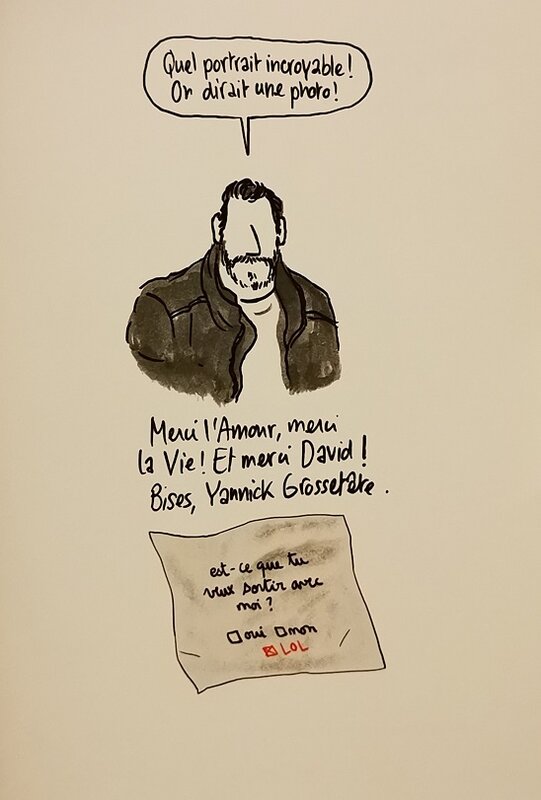 Quel portrait incroyable !
On dirait une photo !
Merci l'Amour, merci
la Vie ! Et merci David !
Bises, Yannick Grossetête.
est-ce que tu
veux sortir avec
moi ?
☐ oui ☐ non
☒ LOL